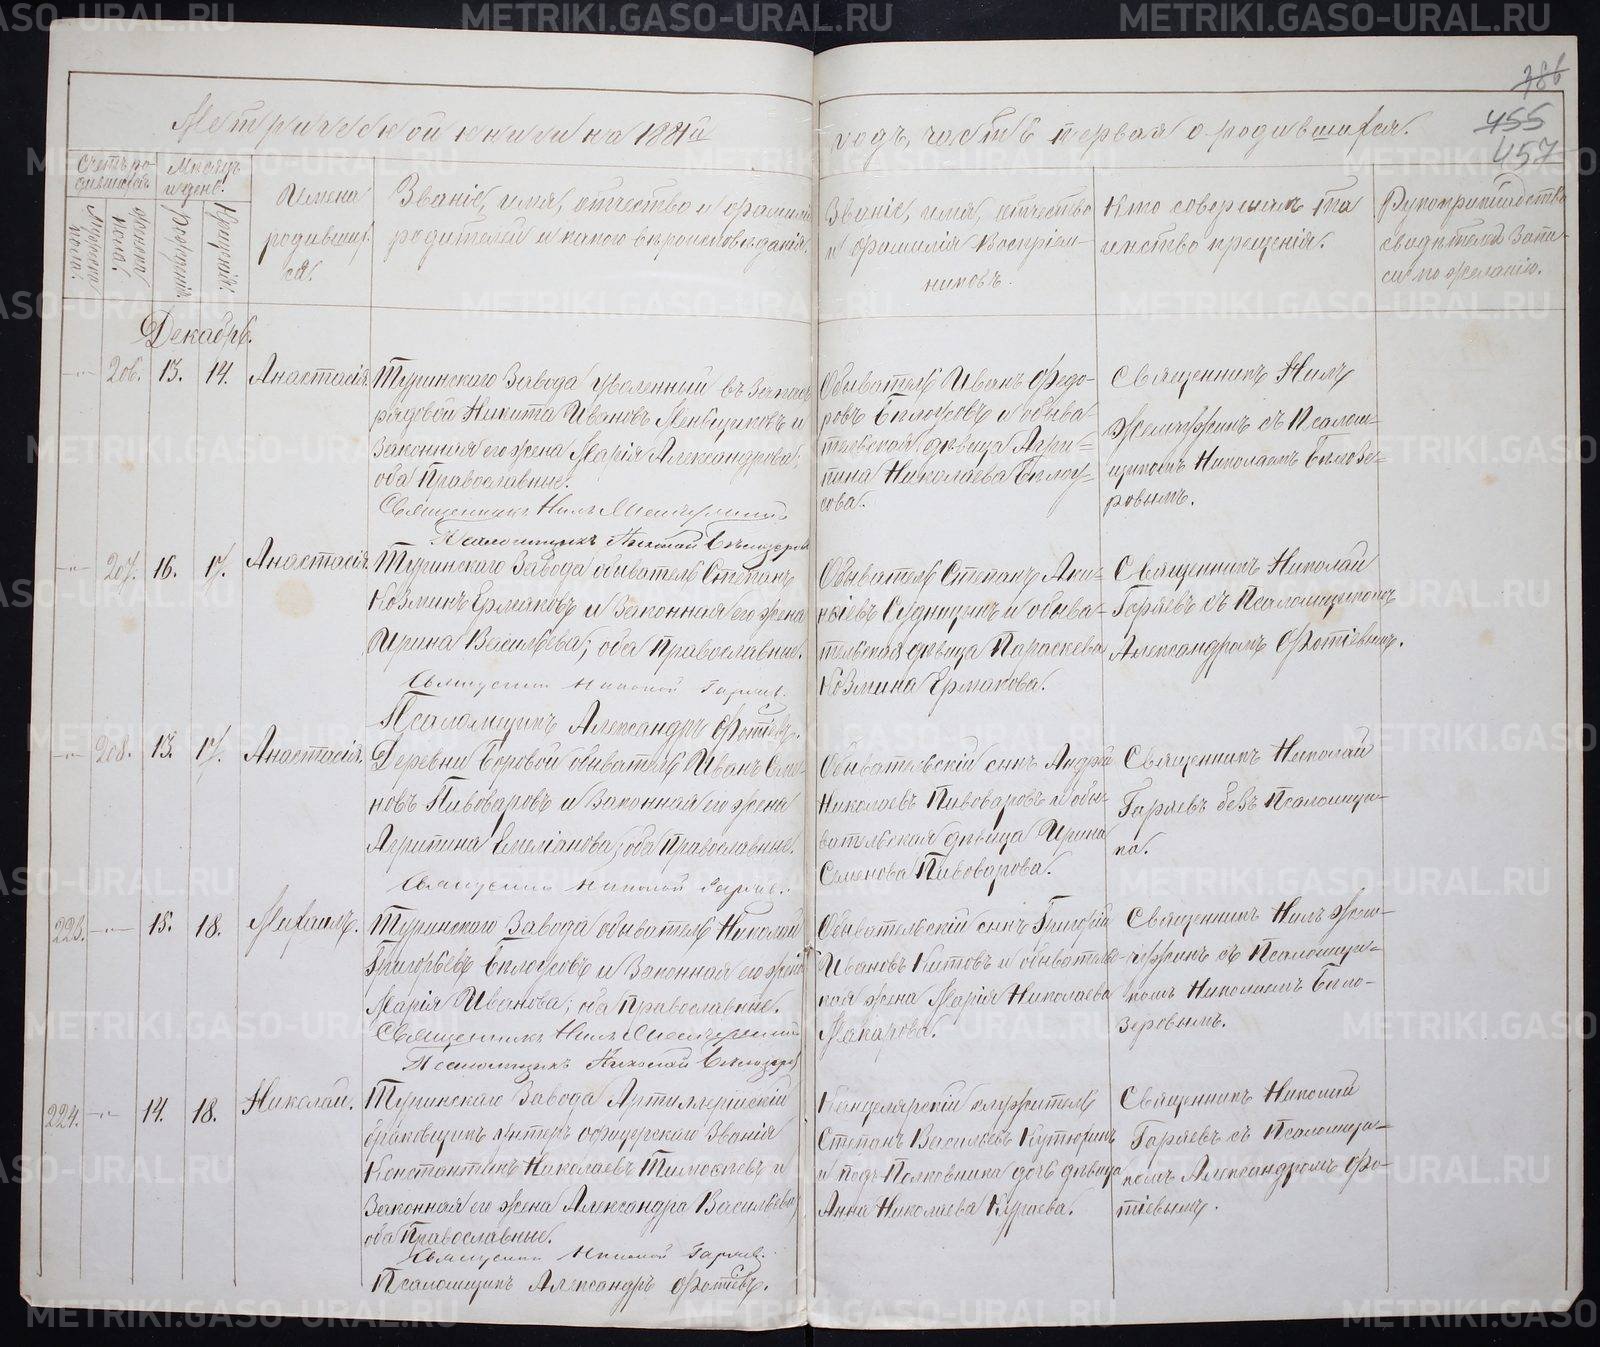 386
455
457
Метрической книги на 1881й
годъ, часть первая о родившихся.
Счетъ ро-
дившихся.
Мѣсяцъ
и день.
Мужеска
пола.
Женска
пола.
Рожденія.
Крещенія.
Имена
родивших-
ся.
Званіе, имя, отчество и фамилія
родителей и какого вѣроисповѣданія.
Званіе, имя, отчество
и фамилія воспріем-
никовъ.
Кто совершалъ та-
инство крещенія.
Рукоприкладство
свидѣтелей запи-
си по желанію.
Декабрь.
206. 13. 14. Анастасія
Туринскаго Завода уволенный въ запасъ
рядовой Никита Ивановъ Меньщиковъ и
законная его жена Марія Александрова,
оба Православные.
Священникъ Нилъ
Псаломщикъ Николай Бѣлозеровъ
Обыватель Иванъ Федо-
ровъ Бѣлоусовъ и обыва-
тельская дѣвица Агри-
пина Николаева Бѣлоу-
сова.
Священникъ Нилъ
съ Псалом-
щикомъ Николаемъ Бѣлозе-
ровымъ.
207. 16. 17. Анастасія
Туринскаго Завода обыватель Степанъ
Козминъ Ермаковъ и законная его жена
Ирина Васильева; оба Православные.
Священникъ Николай Гаряевъ.
Псаломщикъ Александръ Фотіевъ.
Обыватель Степанъ
Судницынъ и обыва-
тельская дѣвица Параскева
Козмина Ермакова.
Священникъ Николай
Гаряевъ съ Псаломщикомъ
Александромъ Фотіевымъ.
208. 13. 17. Анастасія.
Деревни Боровой обыватель Иванъ Семе-
новъ Пивоваровъ и законная его жена
Агрипина Емеліанова, оба Православные.
Священникъ Николай Гаряевъ.
Обывательскій сынъ Андрей
Николаевъ Пивоваровъ и обы-
вательская дѣвица Ирина
Семенова Пивоварова.
Священникъ Николай
Гаряевъ безъ Псаломщи-
ка.
223. 15. 18. Михаилъ.
Туринскаго Завода обыватель Николай
Григорьевъ Бѣлоусовъ и законная его жена
Марія Иванова; оба Православные.
Священникъ Нилъ
Псаломщикъ Николай Бѣлозеровъ
Обывательскій сынъ Григорій
Ивановъ Китовъ и обыватель-
кая жена Марія Николаева
Макарова.
Священникъ Нилъ
съ Псаломщи-
комъ Николаемъ Бѣло-
зеровымъ.
224. 14. 18. Николай.
Туринскаго Завода Артиллерійскій
браковщикъ унтеръ офицерскаго званія
Константинъ Николаевъ Тимофеевъ и
законная его жена Александра Васильева,
оба Православные.
Священникъ Николай Гаряевъ.
Псаломщикъ Александръ Фотіевъ.
Канцелярскій служитель
Степанъ Васильевъ Кутюхинъ
и подъ Полковника дочь дѣвица
Анна Николаева Кураева.
Священникъ Николай
Гаряевъ съ Псаломщи-
комъ Александромъ Фо-
тіевымъ.
METRIKI.GASO-URAL.RU